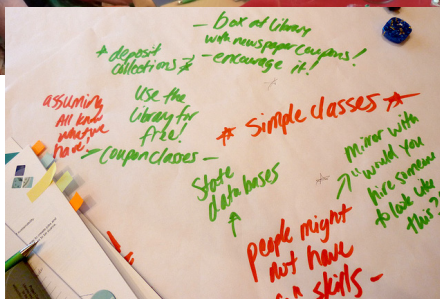 - box at library
with newspaper coupons!
- encourage it!
* deposit
collections *
assuming
All know
what we
have!
Use the
library for
free!
- coupon classes -
* Simple classes *
State
databases
Mirror with
"would you
hire someone
to look like
this?"
people might
not have
skills -